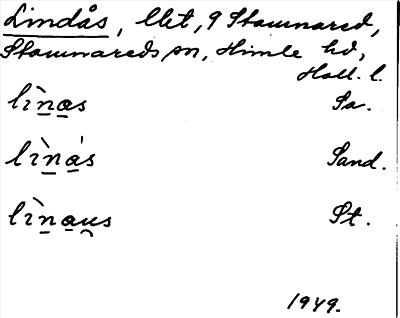 Lindås, llet, 9 Stamnared,
Stamnareds sn, Himle hd,
Hall. l.
lìnas Sa.
lìnás Sand.
lìnaus St.
1949.